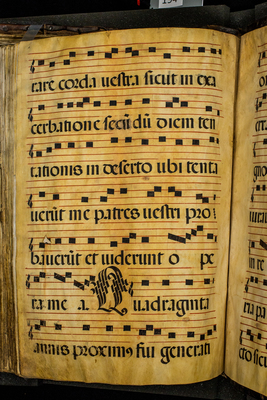 rare corda uestra sicut in exa
cerbatione secūdū diem ten
tationis in deserto ubi tenta
uerūt me patres uestri pro
bauerūt et uiderunt o pe
ra me a. Quadraginta
annis proximꝰ fui generati